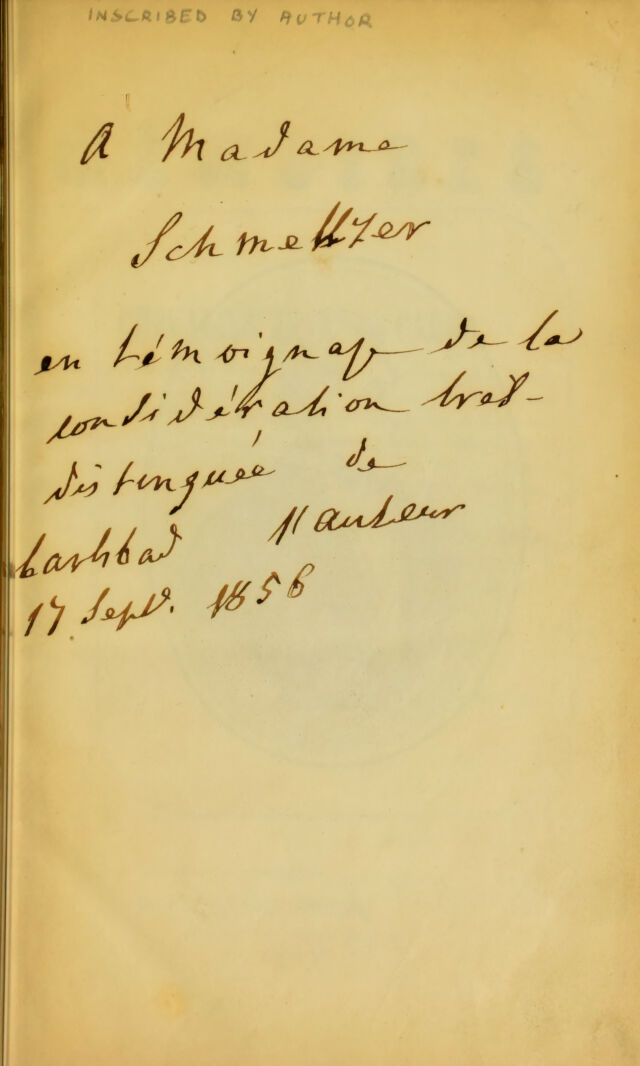 INSCRIBED BY AUTHOR
A Madame
Schmeltzer
en témoignage de la
considération tres-
distinguée de
Carlsbad l'auteur
17 Sept. 1856